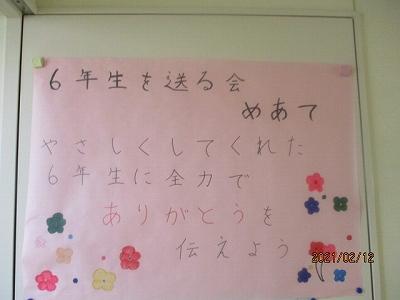 6年生を送る会
めあて
やさしくしてくれた
6年生に全力で
ありがとうを
伝えよう
2021/02/12